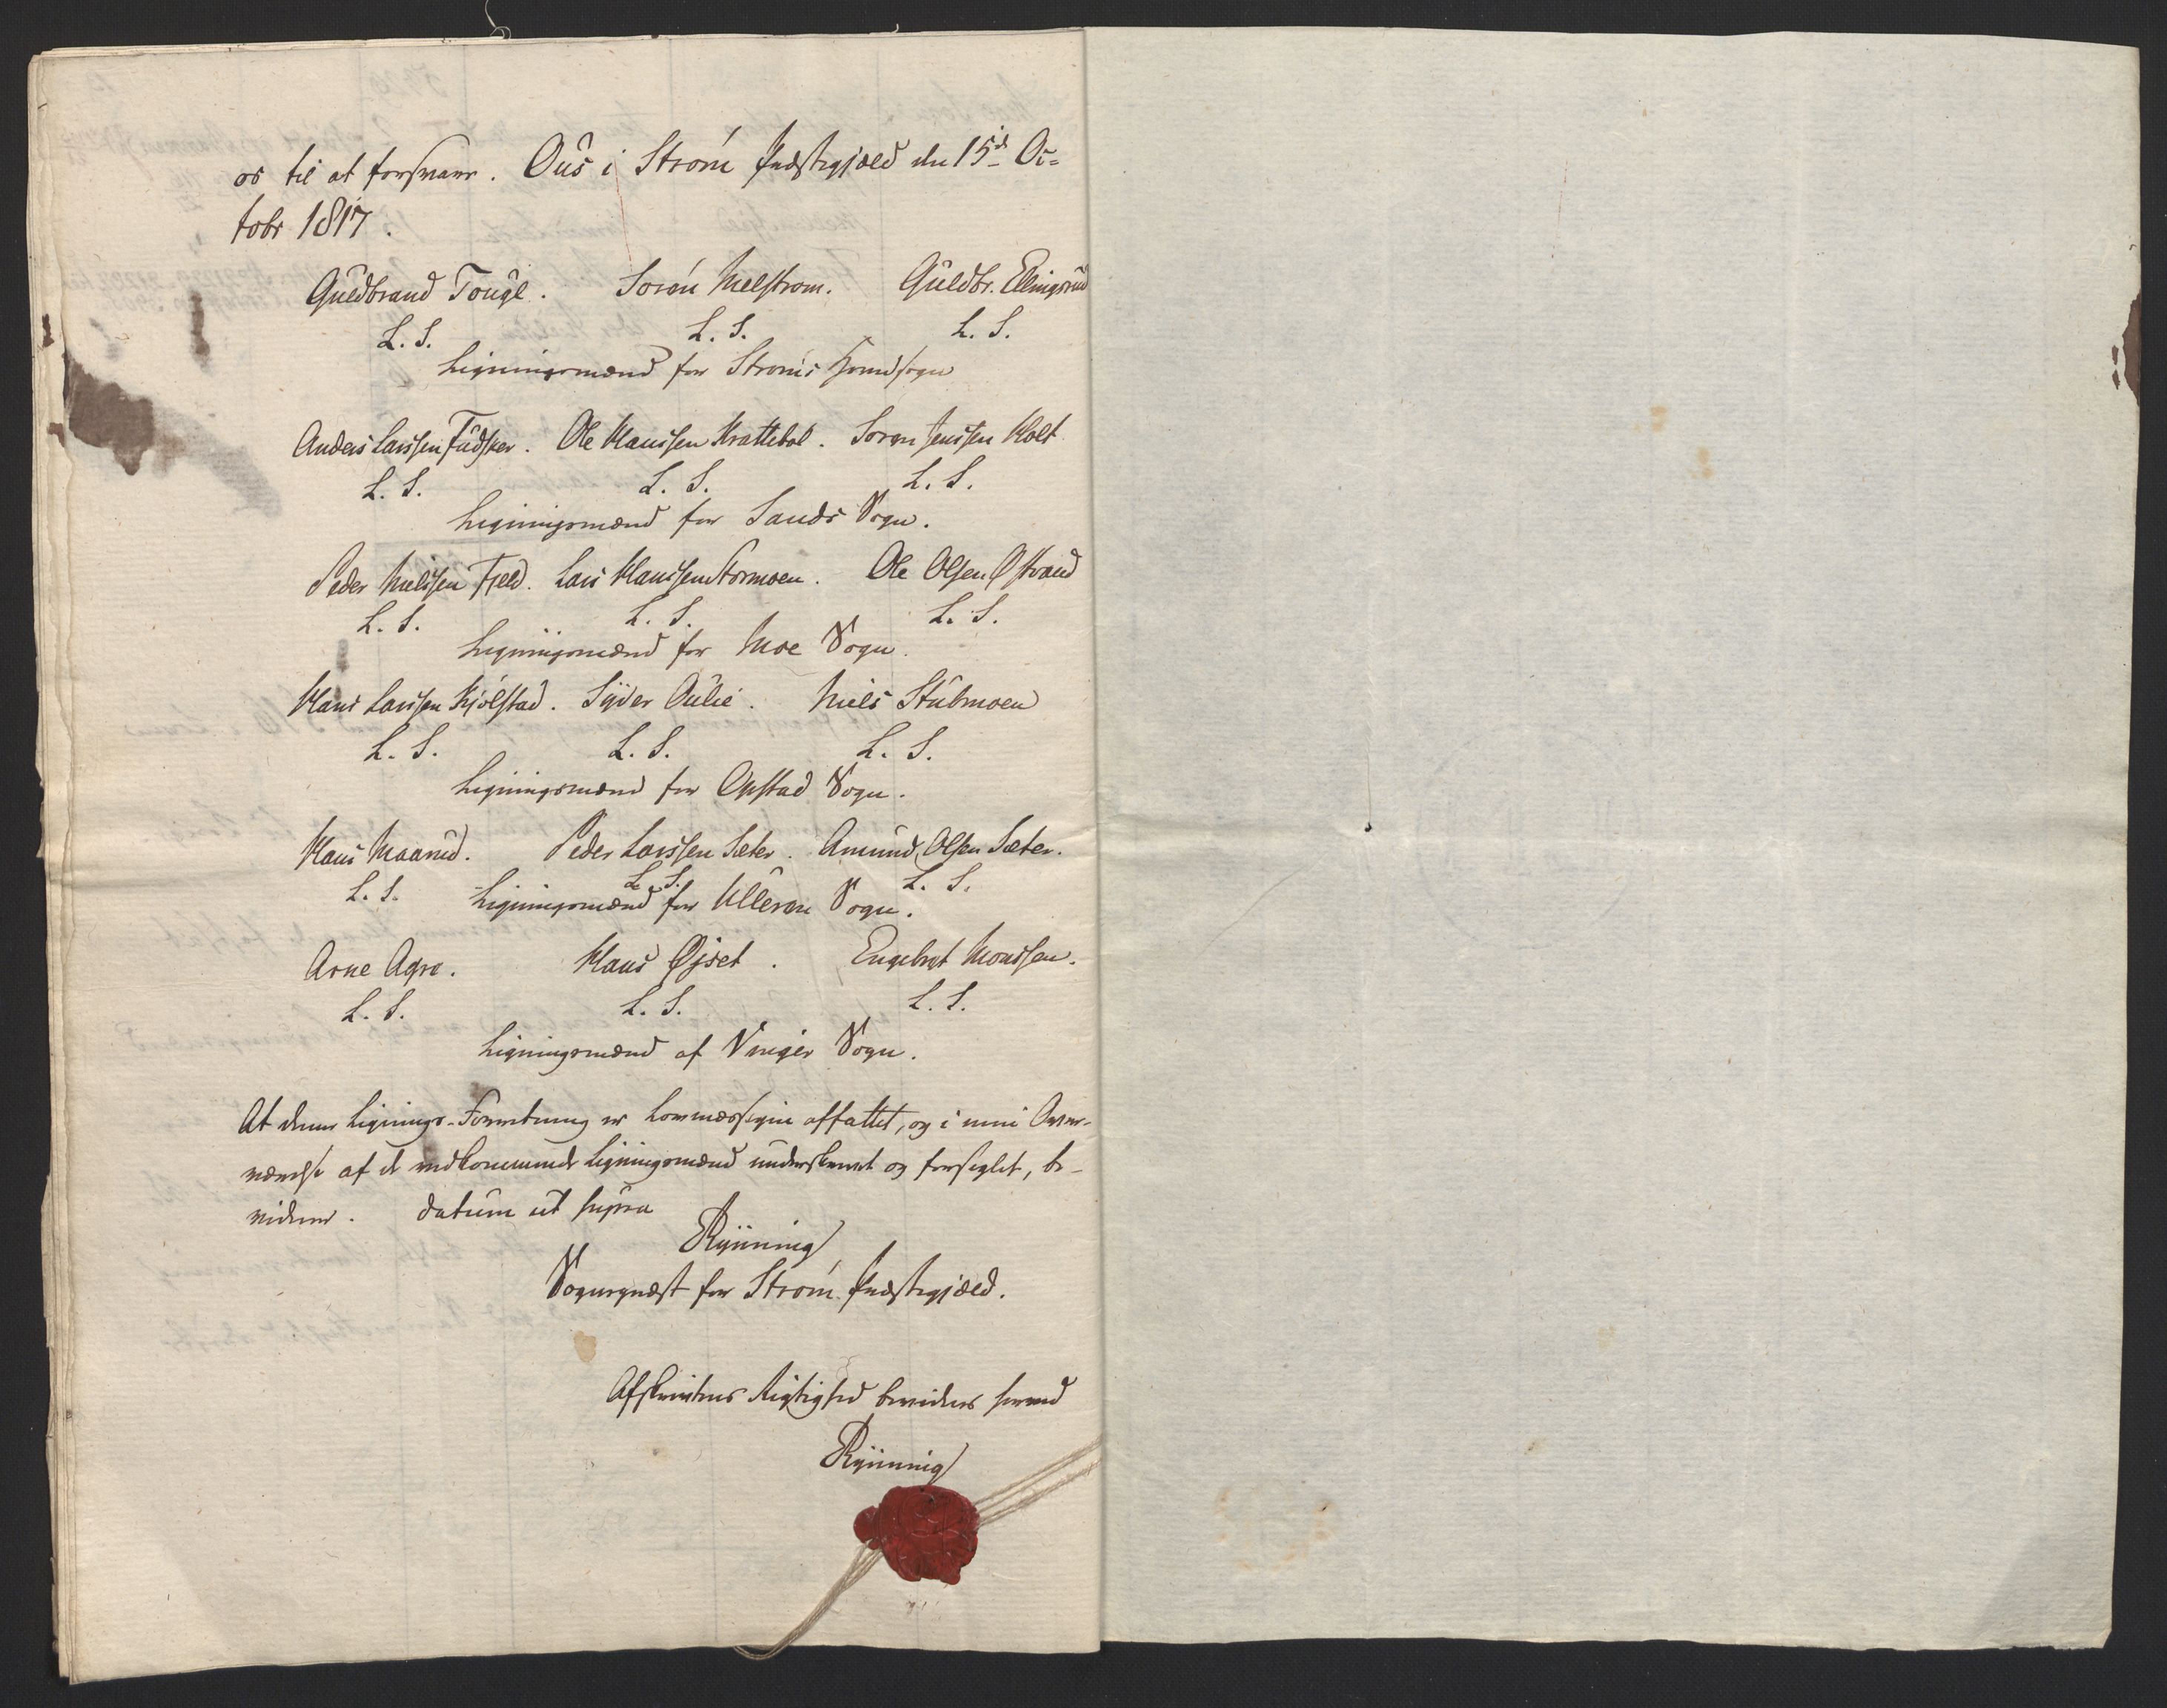 os til at forsvare. Ous i Strøm Præstegjæld den 15d Oc=
tobr 1817.
Guldbrand Tougl. Sørén Melstrøm. Guldbr. Ellingsrud
L. S. L. S. L. S.
Ligningsmænd for Strøms Hovedsogn
Anders Larssen Fudsker. Ole Hanssen Krattebøl. Søren Jenssen Holt
L. S. L. S. L. S.
Ligningsmænd for Sands Sogn.
Peder Nielssen Fjeld. Lars Hanssen Stormoen. Ole Olsen Østrand
L. S. L. S. L. S.
Ligningsmænd for Moe Sogn.
Hans Larssen Kjølstad. Syver Aulie. Niels Stubmoen
L. S. L. S. L. S.
Ligningsmænd for Opstad Sogn.
Hans Maarud. Peder Larssen Sæter. Amund Olsen Sæter.
L. S. L. S. L. S.
Ligningsmænd for Ulleren Sogn.
Arne Agre. Hans Øjset. Engebret Monssen.
L. S. L. S. L. S.
Ligningsmænd af Vinger Sogn.
At denne Lignings-Forretning er lovmæssigen affattet, og i min Over-
værelse af de vedkommende Ligningsmænd underskrevet og forseglet, be-
vidner. datum ut supra
Rynning
Sognepræst for Strøm Præstegjæld.
Afskriftens Rigtighed bevidnes herved
Rynning